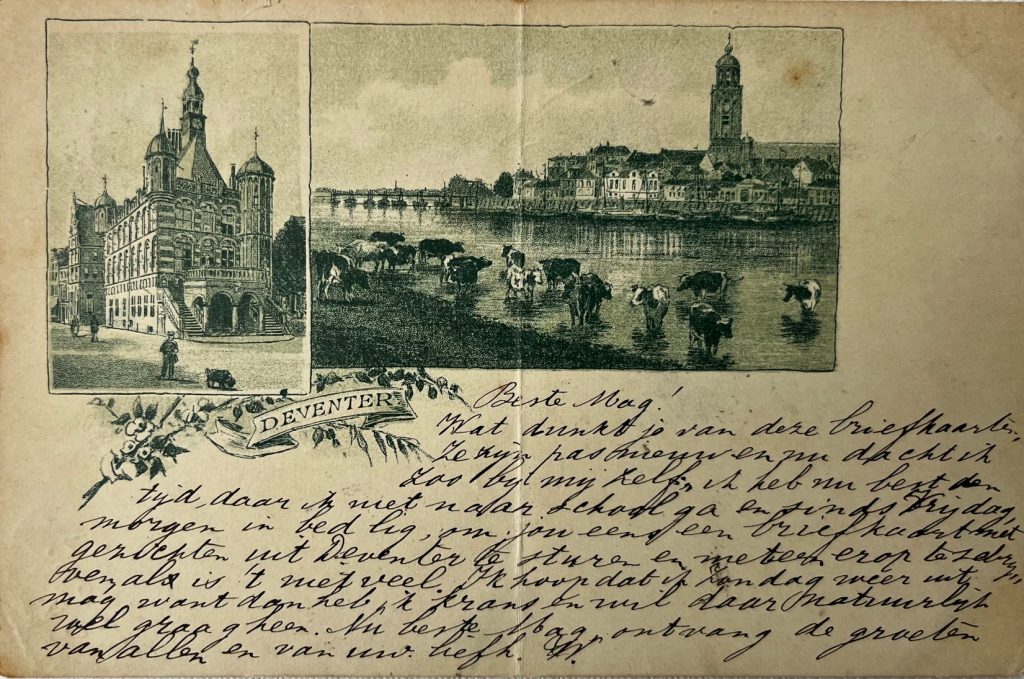 DEVENTER
Beste Mag!
Wat dunkt je van deze briefkaarten,
Ze zijn pas nieuw en nu dacht ik
Zoo bij mij zelf, ik heb nu best den
tijd, daar ik niet naar school ga en sinds Vrijdag
morgen in bed lig, om jou eens een briefkaart met
gezichten uit Deventer te sturen en meteen erop te schrij-
ven, al is 't niet veel. Ik hoop dat ik Zondag weer uit
mag want dan heb ik krans en wil daar natuurlijk
wel graag heen. Nu beste Mag, ontvang de groeten
van allen en van uw liefh. W.